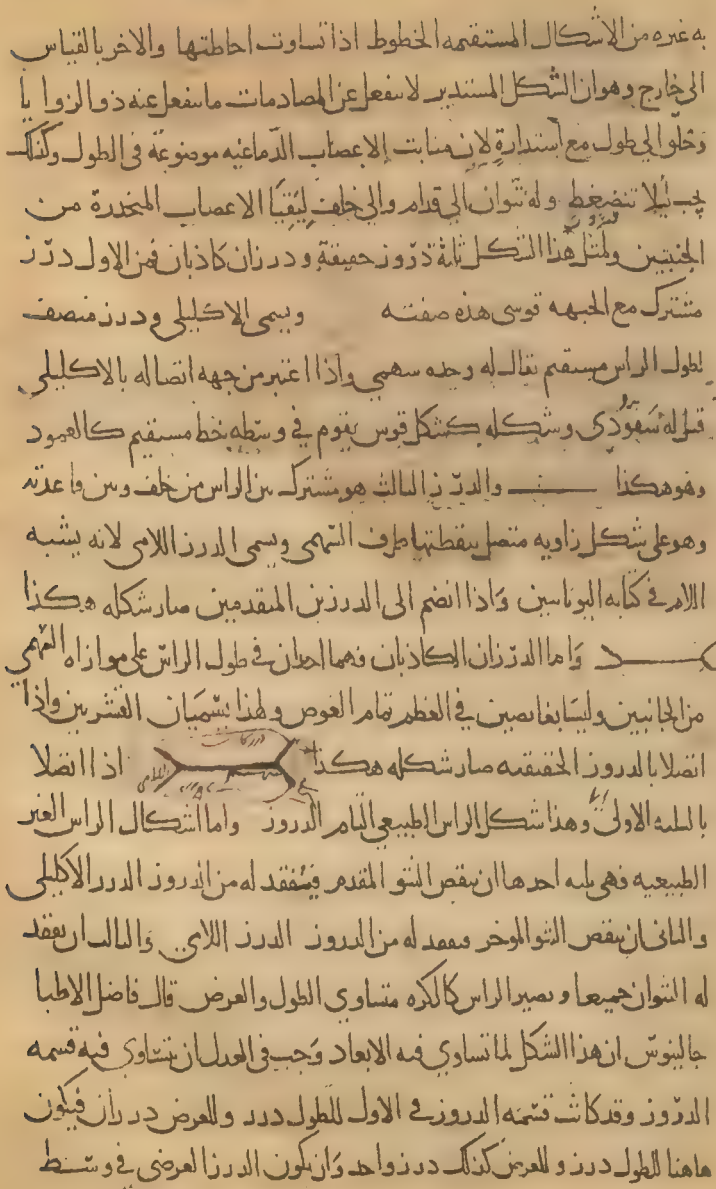 به غيره من الاشكال المستقيمه الخطوط اذا تساوت احاطتها والاخر بالقياس
الى خارج وهو ان الشكل المستدير لا ينفعل عن المصادمات ما ينفعل عنه ذو الزوايا
وخلق الى طول مع استدارة لان منابت الاعصاب الدماغيه موضوعة فى الطول وكذلك
يجب ليلا تنضغط وله نتوان الى قدام والى خلف ليقيا الاعصاب المنحدرة من
الجنبتين ولمثل هذا الشكل ثلثة دروز حقيقة ودرزان كاذبان فمن الاول درز
مشترك مع الجبهه قوسى هذه صفته ويسمى الاكليلى ودرز منصف
لطول الراس مستقيم يقال له وحده سهمى واذا اعتبر من جهه اتصاله بالاكليلى
قيل له سفودى وشكله كشكل قوس يقوم فى وسطه خط مستقيم كالعمود
وهو هكذا والدرز الثالث هو مشترك بين الراس من خلف وبين قاعدته
وهو على شكل زاويه متصل بنقطتها طرف السهمى ويسمى الدرز اللامى لانه يشبه
اللام فى كتابه اليونانيين واذا انضم الى الدرزين المتقدمين صار شكله هكذا
واما الدرزان الكاذبان فهما اخذان فى طول الراس على موازاه السهمى
من الجانبين وليسا بغايصين فى العظم تمام الغوص ولهذا يسميان القشريين واذا
اتصلا بالدروز الحقيقيه صار شكله هكذا اذا اتصلا
بالثلثه الاولى وهذا شكل الراس الطبيعي التام الدروز واما اشكال الراس الغير
الطبيعيه فهى ثلثه احدها ان ينقص النتو المقدم فيفقد له من الدروز الدرز الاكليلى
والثانى ان ينقص النتو الموخر فيفقد له من الدروز الدرز اللامى والثالث ان يفقد
له النتوان جميعا ويصير الراس كالكره متساوى الطول والعرض قال فاضل الاطبا
جالينوس ان هذا الشكل لما تساوى فيه الابعاد وجب فى العدل ان يتساوى فيه قسمه
الدروز وقد كانت قسمه الدروز فى الاول للطول درز وللعرض درزان فيكون
هاهنا للطول درز وللعرض كذلك درز واحد وان يكون الدرز العرضى فى وسط